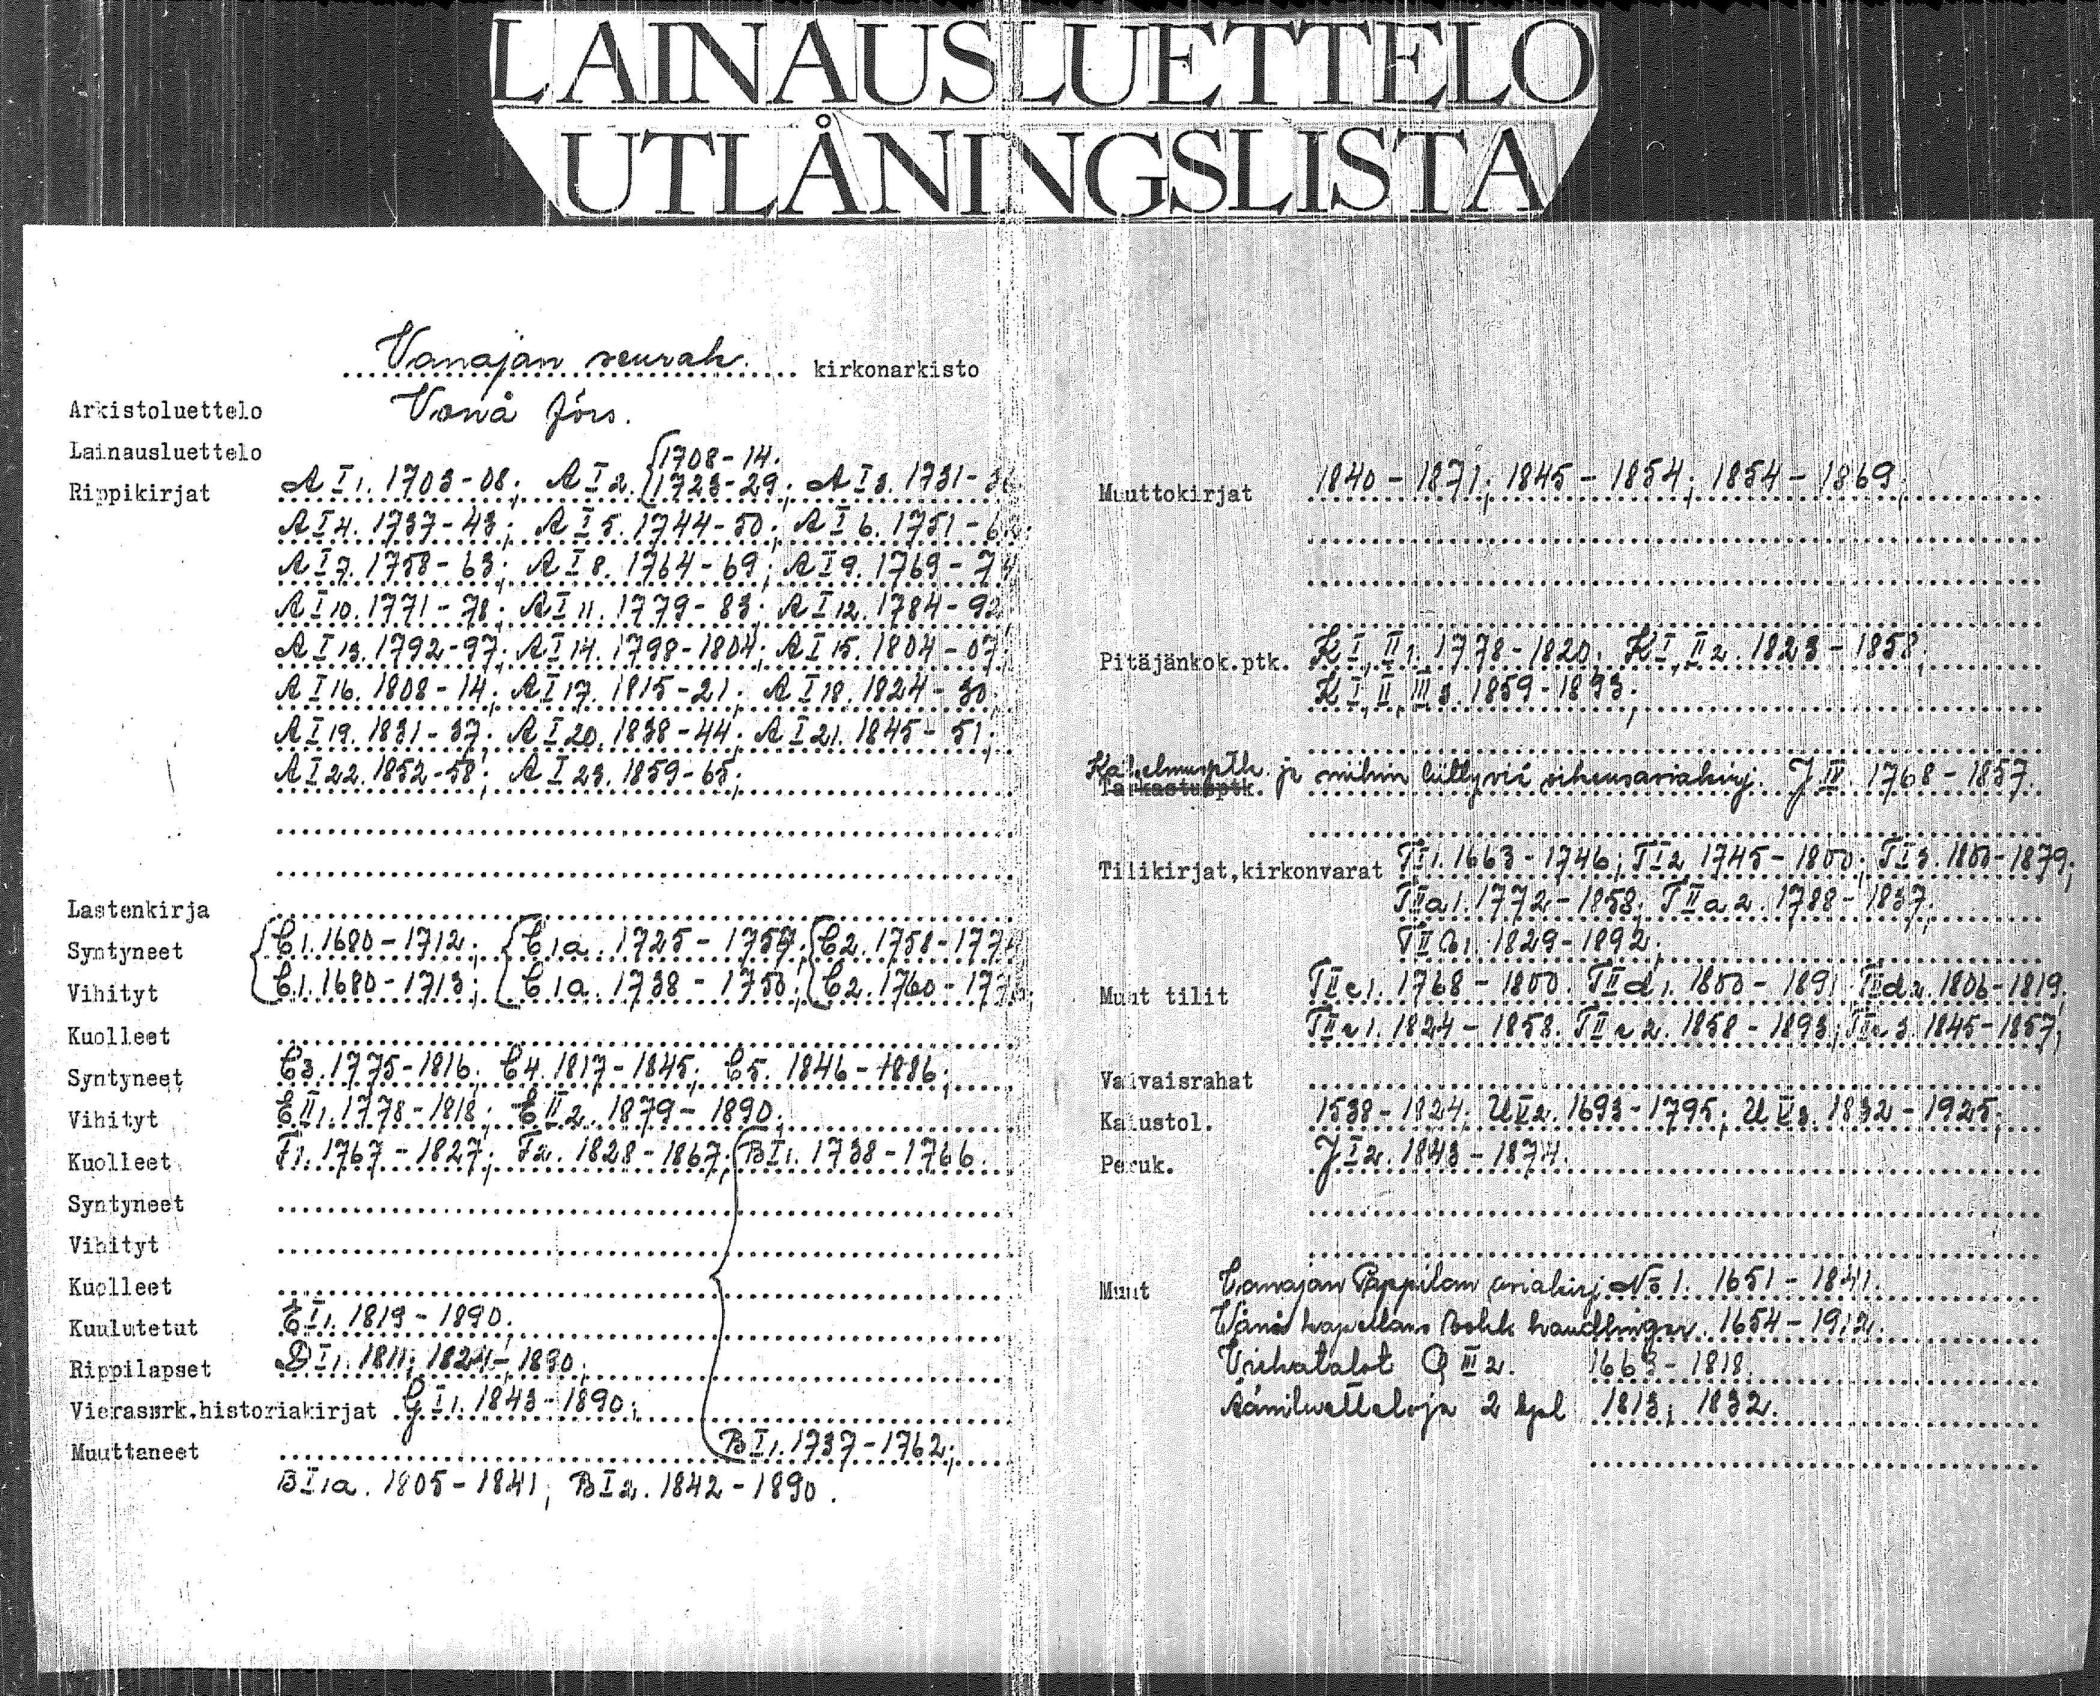 LAINAUSLUETTELO
UTLÅNINGSLISTA
Vanajan seurak. kirkonarkisto
Arkistoluettelo Vånå förs.
Lainausluettelo
Rippikirjat A I 1. 1703-08; A I 2. {1708-14. 1723-29; A I 3. 1731-36
A I 4. 1737-43; A I 5. 1744-50; A I 6. 1751-
A I 7. 1758-63; A I 8. 1764-69; A I 9. 1769-74
A I 10. 1771-78; A I 11. 1779-83; A I 12. 1784-92
A I 13. 1792-97; A I 14. 1798-1804; A I 15. 1804-07;
A I 16. 1808-14; A I 17. 1815-21; A I 18. 1824-30;
A I 19. 1831-37; A I 20. 1838-44; A I 21. 1845-51;
A I 22. 1852-58; A I 23. 1859-65;
Lastenkirja
Syntyneet {C 1. 1680-1712; {C 1a. 1725-1757; {C 2. 1758-1774
Vihityt C 1. 1680-1713; C 1a. 1738-1750; C 2. 1760-177
Kuolleet
Syntyneet C 3. 1775-1816; C 4. 1817-1845; C 5. 1846-1886;
Vihityt E II 1. 1778-1818; E II 2. 1879-1890;
Kuolleet F 1. 1767-1827; F 2. 1828-1867; {B I 1. 1738-1766.
Syntyneet
Vihityt
Kuolleet
Kuulutetut E I 1. 1819-1890.
Rippilapset D I 1. 1811; 1824-1890;
Vierassrk.historiakirjat G I 1. 1843-1890;
Muuttaneet B I 1. 1737-1762;
B I 1a. 1805-1841; B I 2. 1842-1890.
Muuttokirjat 1840-1871; 1845-1854; 1854-1869;
Pitäjänkok.ptk. K I, II 1. 1778-1820; K I, II 2. 1823-1858;
K I, II, III 3. 1859-1893;
Katselmusptk. ja niihin liittyviä oikeusasiakirj. J IV. 1768-1857.
Tarkastusptk.
Tilikirjat,kirkonvarat T I 1. 1663-1746; T I 2 1745-1800; T I 3. 1800-1879;
T II a 1. 1772-1858; T II a 2. 1788-1837;
T II b 1. 1829-1892;
Muut tilit T II c 1. 1768-1800. T II d 1. 1800-1891 T II d 2. 1806-1819.
T II e 1. 1824-1858. T II e 2. 1858-1893; T II e 3. 1845-1857;
Vaivaisrahat
Kalustol. 1538-1824; U V 2. 1693-1795; U V 3. 1832-1925;
Peruk. J I 2. 1843-1874.
Muut Vanajan Pappilan asiakirj. No 1. 1651-1841.
Wånå kapellans handlingar. 1654-1912.
Virkatalot Q III 2. 1663-1818.
Ääniluetteloja 2 kpl 1813; 1832.